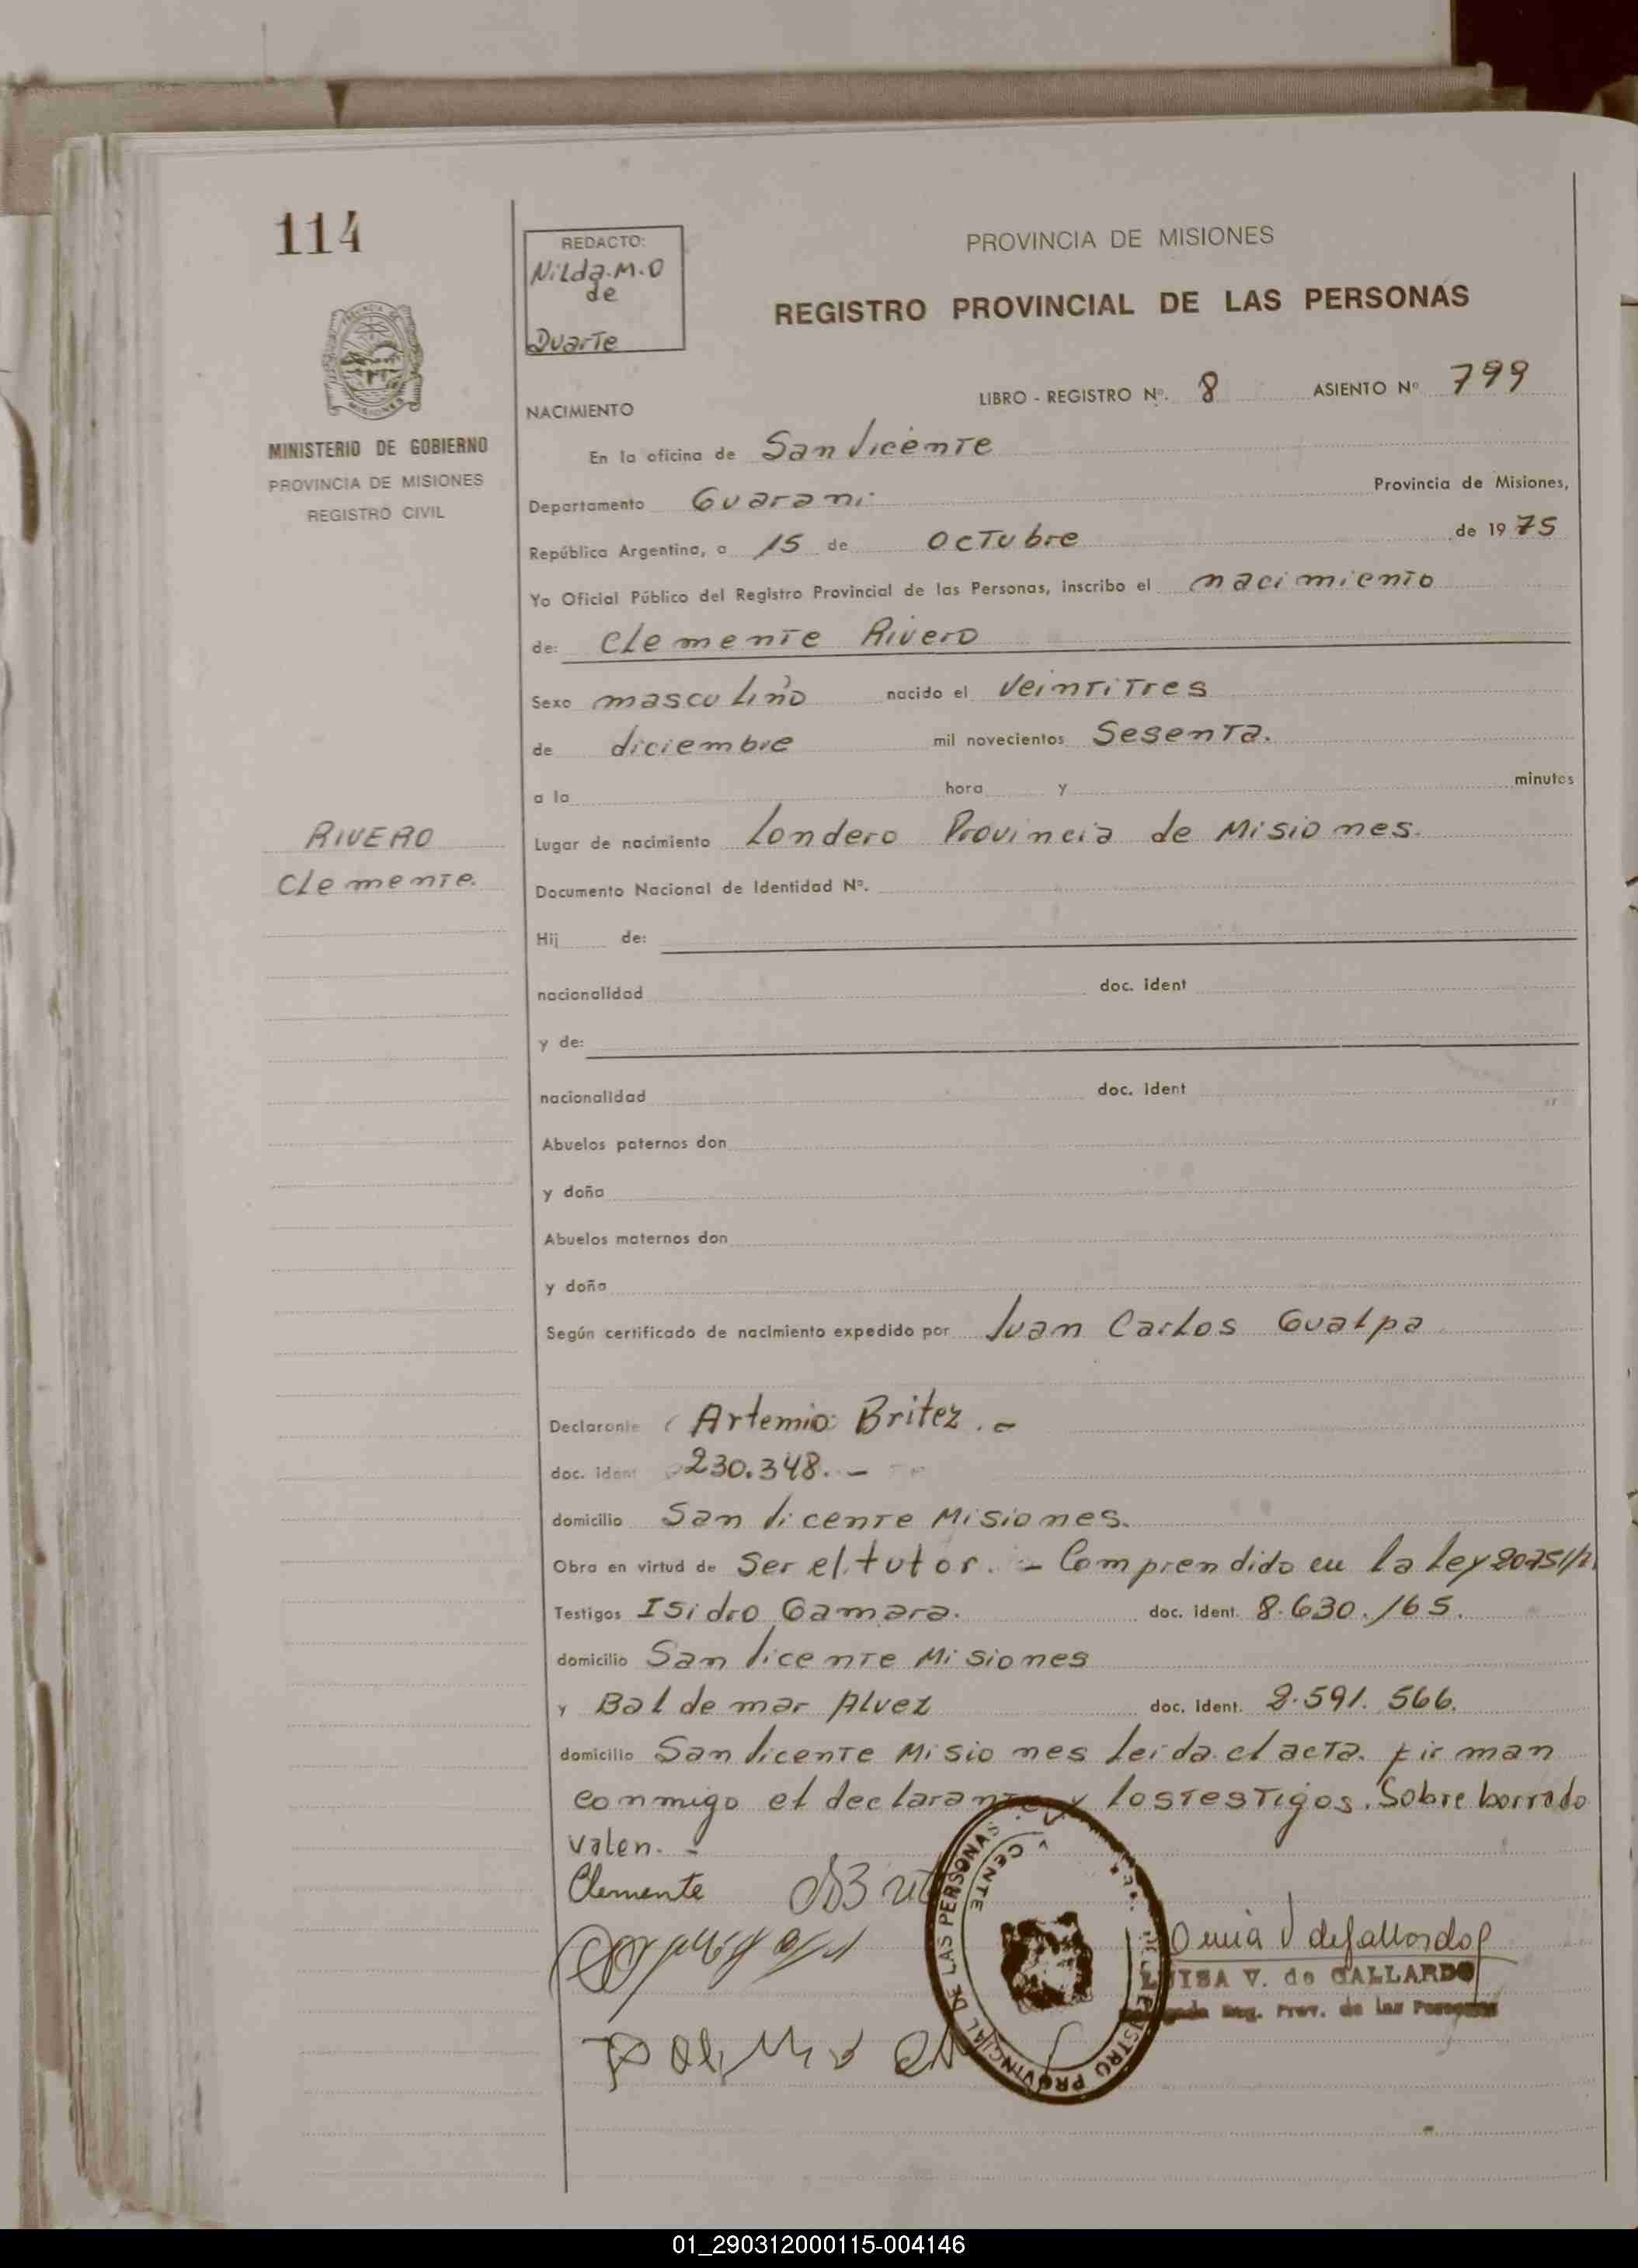 114
REDACTO:
Nilda.M.D
de
Duarte
PROVINCIA DE MISIONES
REGISTRO PROVINCIAL DE LAS PERSONAS
MINISTERIO DE GOBIERNO
PROVINCIA DE MISIONES
REGISTRO CIVIL
NACIMIENTO LIBRO - REGISTRO Nº. 8 ASIENTO Nº 799
En la oficina de San Vicente
Departamento Guarani Provincia de Misiones,
República Argentina, a 15 de Octubre de 1975
Yo Oficial Público del Registro Provincial de las Personas, inscribo el nacimiento
de: Clemente Rivero
Sexo masculino nacido el Veintitres
de diciembre mil novecientos Sesenta.
a la hora y minutos
RIVERO
Clemente.
Lugar de nacimiento Londero Provincia de Misiones.
Documento Nacional de Identidad Nº.
Hij de:
nacionalidad doc. ident
y de:
nacionalidad doc. ident
Abuelos paternos don
y doña
Abuelos maternos don
y doña
Según certificado de nacimiento expedido por Juan Carlos Gualpa
Declarante Artemio Britez . -
doc. ident 230.348. -
domicilio San Vicente Misiones.
Obra en virtud de Ser el tutor. - Comprendido en la Ley 20751/
Testigos Isidro Gamara. doc. ident. 8.630.165.
domicilio San Vicente Misiones
y Baldemar Alvez doc. ident. 8.591.566.
domicilio San Vicente Misiones leida el acta. firman
conmigo el declarante y los testigos. Sobre borrado
valen. -
Clemente
LUISA V. de GALLARDO
Reg. Prov. de las Personas
REGISTRO PROVINCIAL DE LAS PERSONAS
01_290312000115-004146